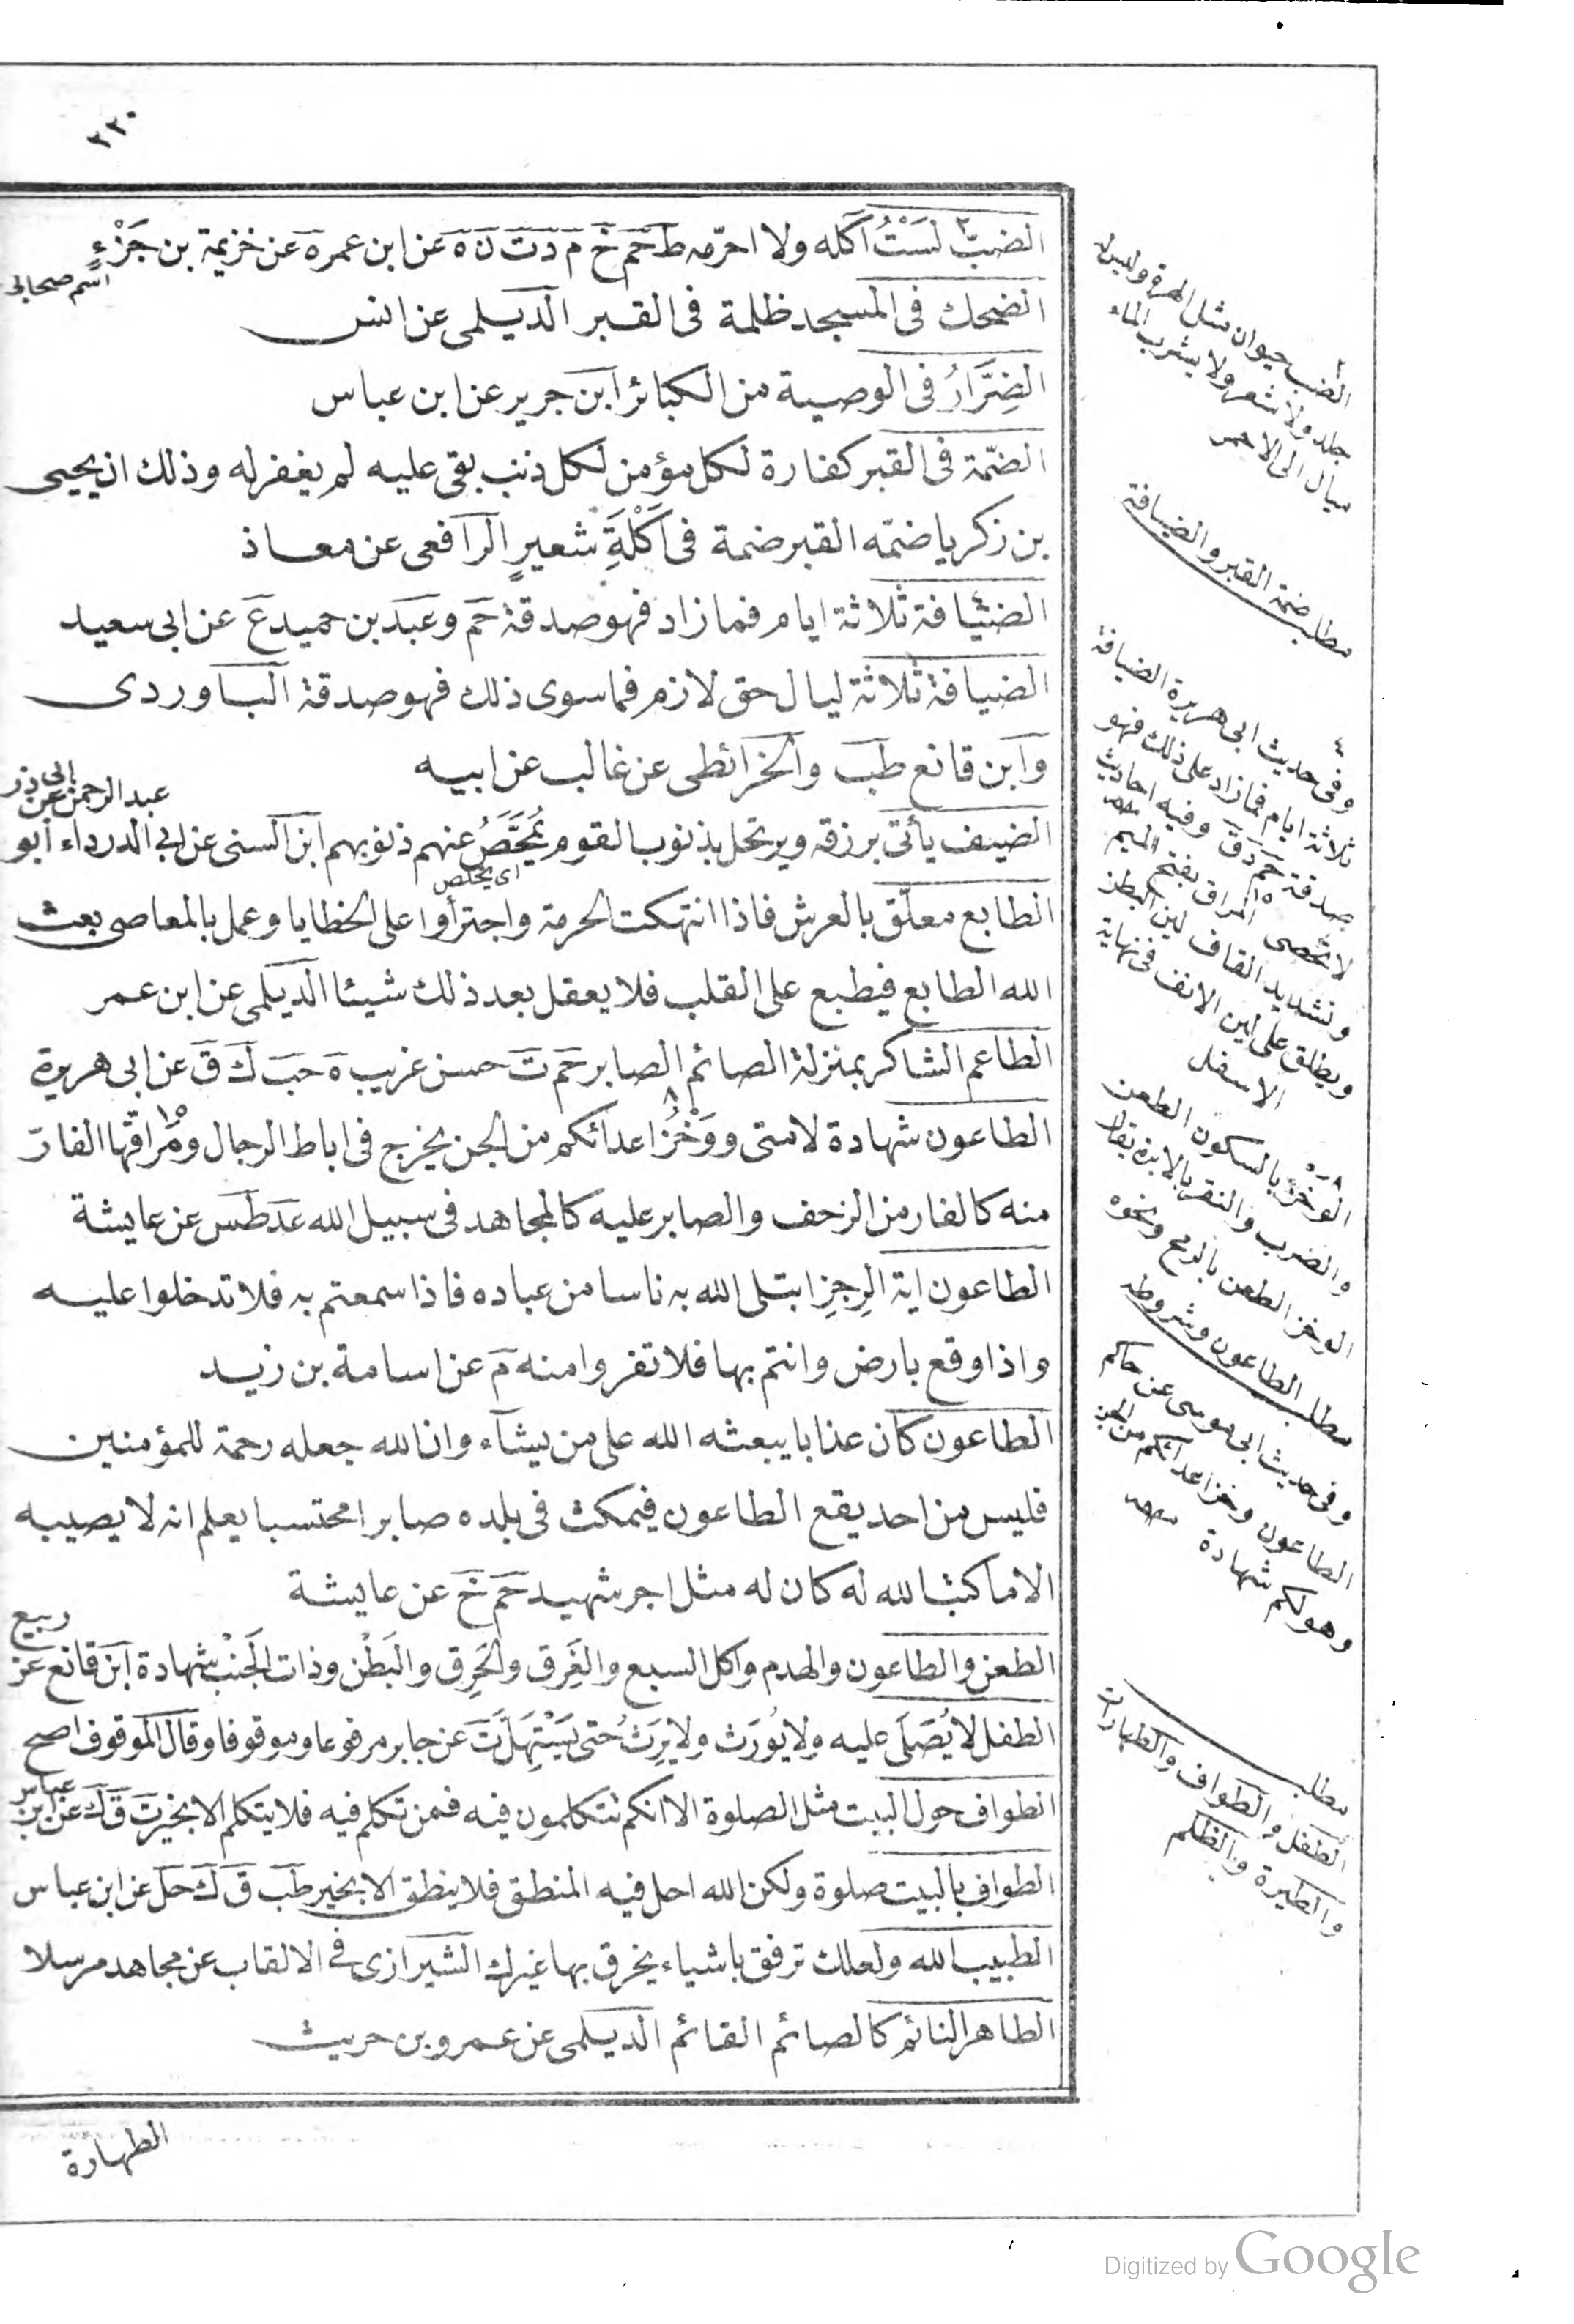 ٢٢٠
الضبّ لَسْتُ آكله ولا احرّمه ط حم خ م د ت ن ه عن ابن عمر ه عن خزيمة بن جَزْءٍ
اسم صحابى
الضحك فى المسجد ظلمة فى القبر الديلمى عن انس
الضِرَارُ فى الوصية من الكبائر ابن جرير عن ابن عباس
الضمّة فى القبر كفارة لكل مؤمن لكل ذنب بقى عليه لم يغفر له وذلك ان يحيى
بن زكريا ضمّه القبر ضمة فى اَكْلَةِ شعيرٍ الرافعى عن معاذ
الضيافة ثلاثة ايام فما زاد فهو صدقة حم وعبد بن حميد ع عن ابى سعيد
الضيافة ثلاثة ليال حق لازم فما سوى ذلك فهو صدقة الباوردى
وابن قانع طب والخرائطى عن غالب عن ابيه
الضيف يأتى برزقه ويرتحل بذنوب القوم يُمَحِّصُ عنهم ذنوبهم ابن السنى عن ابى الدرداء ابو
عبد الرحمن عن ابى ذر
اى يخلص
الطابع معلّق بالعرش فاذا انتهكت الحرمة واجترأوا على الخطايا وعمل بالمعاصى بعث
الله الطابع فيطبع على القلب فلا يعقل بعد ذلك شيئا الديلمى عن ابن عمر
الطاعم الشاكر بمنزلة الصائم الصابر حم ت حسن غريب ه حب ك ق عن ابى هريرة
الطاعون شهادة لامتى ووَخْزُ اعدائكم من الجن يخرج فى اباط الرجال ومَراقّها الفارّ
منه كالفار من الزحف والصابر عليه كالمجاهد فى سبيل الله عد طس عن عايشة
الطاعون اية الرِجزِ ابتلى الله به ناسا من عباده فاذا سمعتم به فلا تدخلوا عليه
واذا وقع بارض وانتم بها فلا تفروا منه م عن اسامة بن زيد
الطاعون كان عذابا يبعثه الله على من يشآء وان الله جعله رحمة للمؤمنين
فليس من احد يقع الطاعون فيمكث فى بلده صابرا محتسبا يعلم انه لا يصيبه
الا ما كتب الله له كان له مثل اجر شهيد حم خ عن عايشة
الطعن والطاعون والهدم واكل السبع والغَرِق والحَرِق والبَطْن وذات الجَنْب شهادة ابن قانع عن
ربيع
الطفل لا يُصَلَى عليه ولا يُورَث ولا يَرِثُ حتى يَسْتَهِلَّ ت عن جابر مرفوعا وموقوفا وقال الموقوف اصح
الطواف حول البيت مثل الصلوة الا انكم تتكلمون فيه فمن تكلم فيه فلا يتكلم الا بخير ت ق ك عن ابن
عباس
الطواف بالبيت صلوة ولكن الله احل فيه المنطق فلا ينطق الا بخير طب ق ك حل عن ابن عباس
الطبيب الله ولعلك ترفق باشياء يخرق بها غيرك الشيرازى فى الالقاب عن مجاهد مرسلا
الطاهر النائم كالصائم القائم الديلمى عن عمرو بن حريث
الطهارة
الضب حيوان مثل الهرة وليس له
جلد ولا شعر ولا يشرب الماء
ميال الى الاحمر
مطلب ضمة القبر والضيافة
وفى حديث ابى هريرة الضيافة
ثلاثة ايام فما زاد على ذلك فهو
صدقة حم د ق وفيه احاديث
لا تحصى
المراق بفتح الميم
وتشديد القاف لين البطن
ويطلق على لين الانف فى نهاية
الاسفل
الوَخْزُ بالسكون الطعن
والضرب والنقر بالابرة يقال
الوخز الطعن بالرمح ونحوه
مطلب الطاعون وشروطه
وفى حديث ابى موسى عن حاكم
الطاعون وخز اعدائكم من الجن
وهو لكم شهادة
مطلب
الطفل والطواف والطهارات
والطيرة والظلم
Digitized by Google